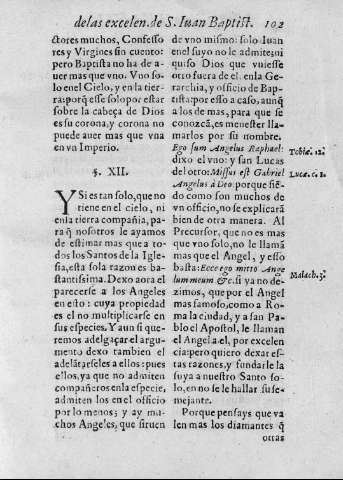 delas excelen. de S. Iuan Baptist. 102
ctores muchos, Confesso
res y Virgines sin cuento:
pero Baptista no ha de a
uer mas que vno. Vno so
lo en el Cielo, y en la tie
rra: porq̃ esse solo por estar
sobre la cabeça de Dios
es su corona, y corona no
puede auer mas que vna
en vn Imperio.
§. XII.
Y Si es tan solo, que no
tiene en el cielo, ni
en la tierra compañia, pa
ra q̃ nosotros le ayamos
de estimar mas que a to-
dos los Santos de la Igle
sia, esta sola razon es ba-
stantissima. Dexo aora el
parecerse a los Angeles
en esto: cuya propiedad
es el no multiplicarse en
sus especies. Y aun si que
remos adelgaçar el argu
mento dexo tambien el
adelãtarseles a ellos: pues
ellos, ya que no admiten
compañeros en la especie,
admiten los en el officio
por lo menos; y ay mu-
chos Angeles, que siruen
de vno mismo: solo Iuan
en el suyo no le admite; ni
quiso Dios que vuiesse
otro fuera de el en la Ge
rarchia, y officio de Bap-
tista: por esso a caso, aunq̃
a los de mas, para que se
conozcã, es menester lla-
marlos por su nombre.
Ego sum Angelus Raphael:
Tobiæ. 12.
dixo el vno: y san Lucas
del otro: Missus est Gabriel
Lucæ. c. 1.
Angelus à Deo: porque siẽ-
do como son muchos de
vn officio, no se explicará
bien de otra manera. Al
Precursor, que no es mas
que vno solo, no le llamã
mas que el Angel, y esso
basta: Ecce ego mitto Ange
Malach. 3.
lum meum &c. si ya no de-
zimos, que por el Angel
mas famoso, como a Ro-
ma la ciudad, y a san Pa-
blo el Apostol, le llaman
el Angel a el, por excelen
cia: pero quiero dexar es-
tas razones, y fundarle la
suya a nuestro Santo so-
lo, en no se le hallar su se-
mejante.
Porque pensays que va
len mas los diamantes q̃
otras